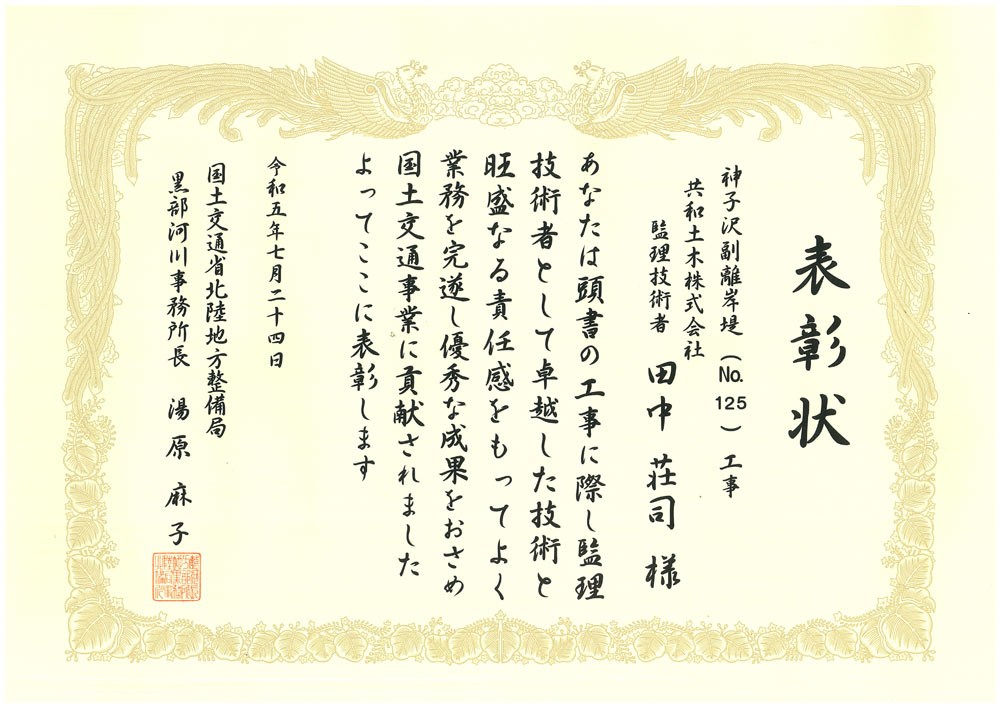 表彰状
神子沢副離岸堤(No.125)工事
共和土木株式会社
監理技術者 田中 荘司 様
あなたは頭書の工事に際し監理
技術者として卓越した技術と
旺盛なる責任感をもってよく
業務を完遂し優秀な成果をおさめ
国土交通事業に貢献されました
よってここに表彰します
令和五年七月二十四日
国土交通省北陸地方整備局
黒部河川事務所長 湯原 麻子